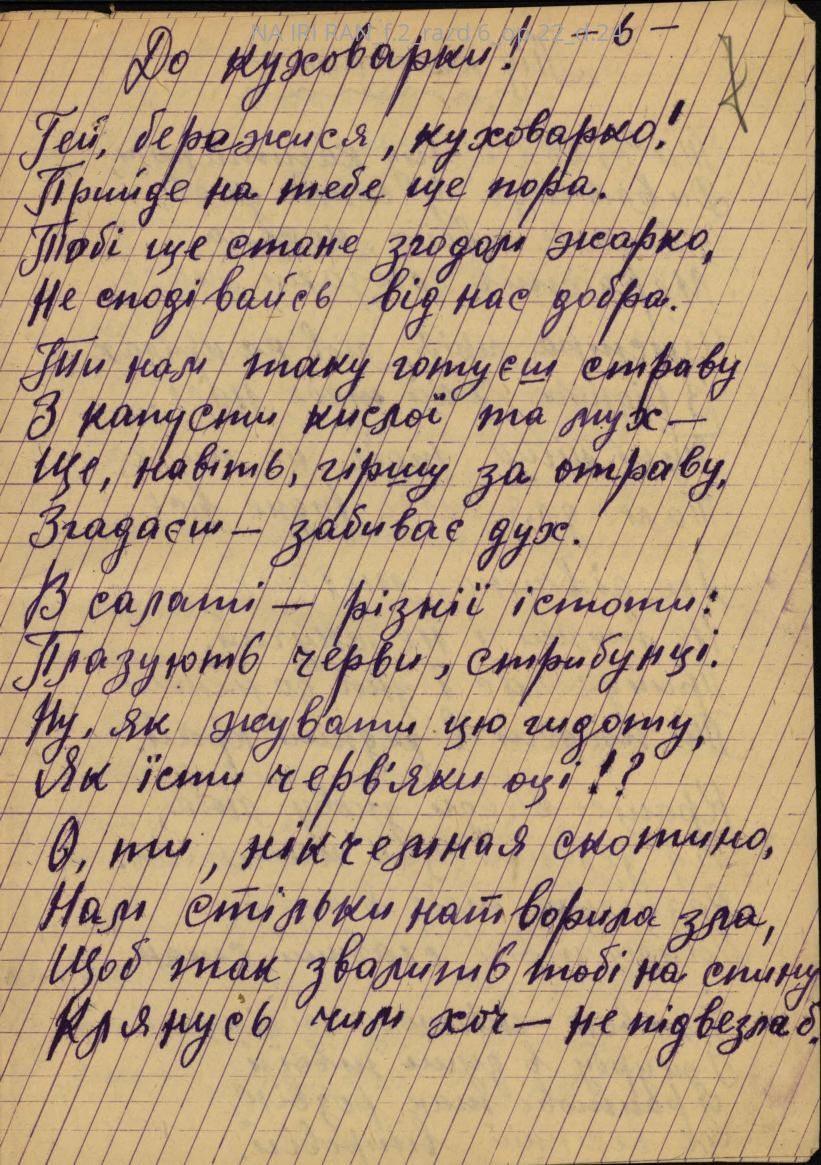 NA IRI RAN f.2_razd.6_op.22_d.24
6 —
До куховарки!
Гей, бережися, куховарко!
Прийде на тебе ще пора.
Тобі ще стане згодом жарко,
Не сподівайсь від нас добра.
Ти нам таку готуєш страву
З капусти кислої та мух —
Ще, навіть, гіршу за отраву,
Згадаєш — забиває дух.
В салаті — різнії істоти:
Плазують черви, стрибунці.
Ну, як жувати цю гидоту,
Як їсти черв'яки оці!?
О, ти, нікчемная скотино,
Нам стільки натворила зла,
Щоб так звалить тобі на спину
Клянусь чим хоч — не підвезла б.